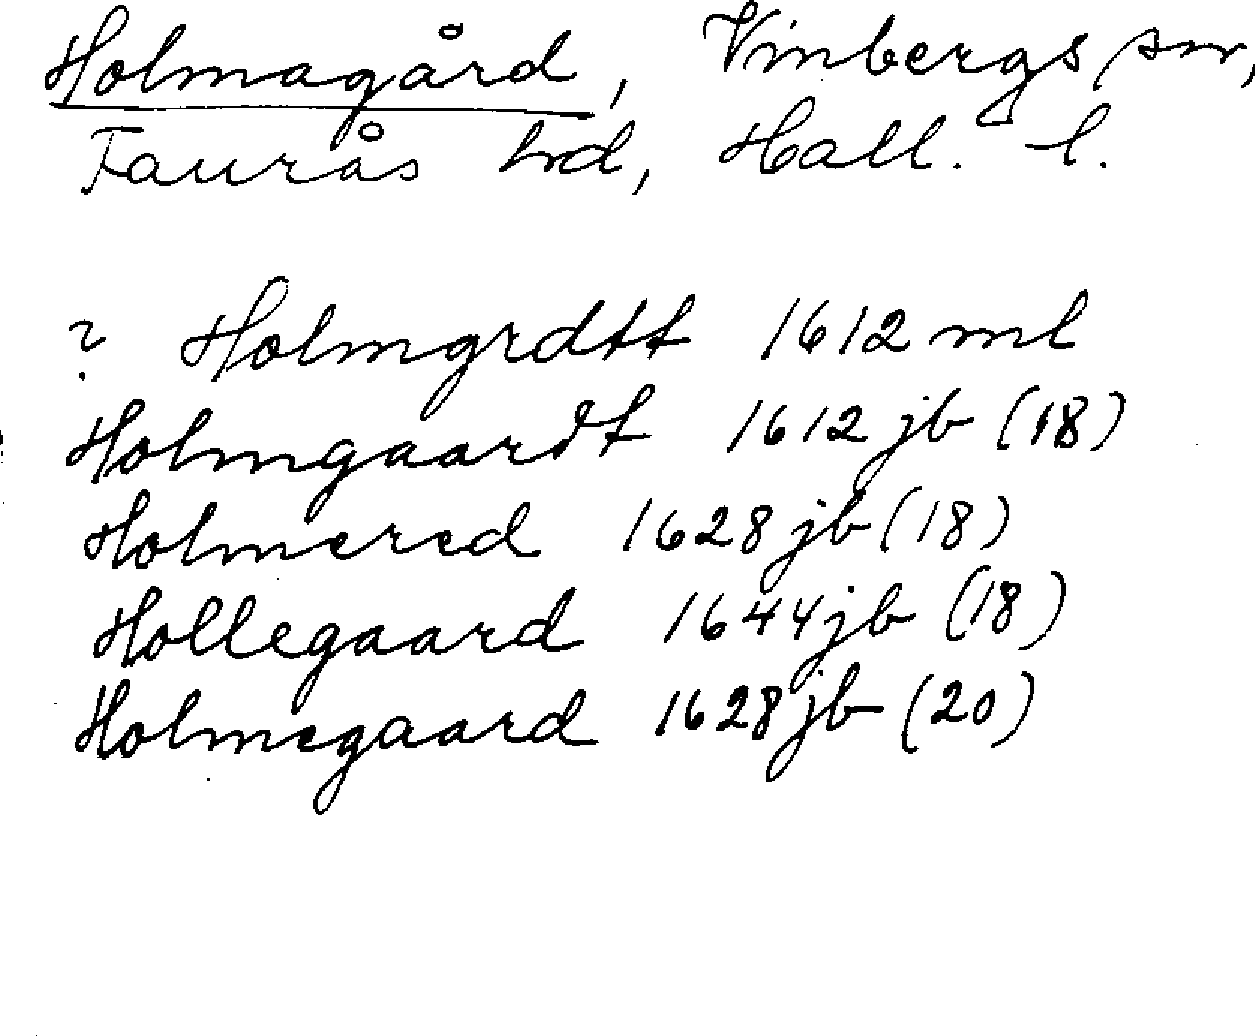 Holmagård, Vinbergs sn,
Faurås hd, Hall. l.
? Holmgrdtt 1612 ml
Holmgaardt 1612 jb (18)
Holmered 1628 jb (18)
Hollegaard 1644 jb (18)
Holmegaard 1628 jb (20)